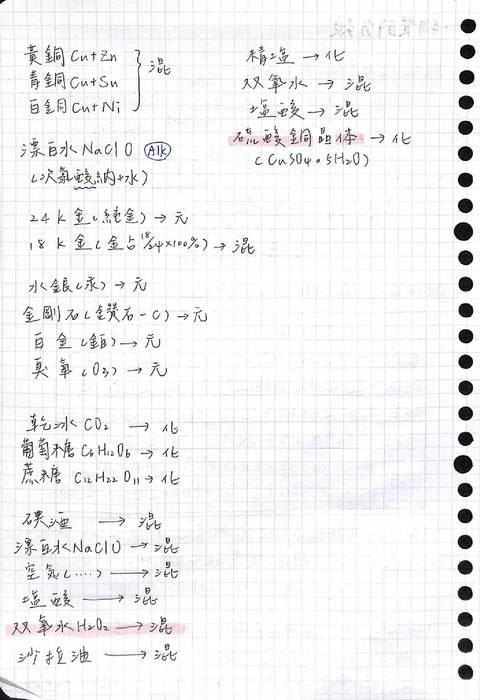 黃銅 Cu+Zn
青銅 Cu+Sn
白銅 Cu+Ni
混
漂白水 NaClO Alk
(次氯酸納+水)
24k金(純金)→元
18k金(金占18/24×100%)→混
水銀(汞)→元
金剛石(鑽石-C)→元
白金(鉑)→元
臭氧(O3)→元
乾冰 CO2 →化
葡萄糖 C6H12O6→化
蔗糖 C12H22O11→化
碘酒 →混
漂白水NaClO→混
空氣(....)→混
塩酸→混
双氧水H2O2→混
沙拉油→混
精塩→化
双氧水→混
塩酸→混
硫酸銅晶体→化
(CuSO4•5H2O)